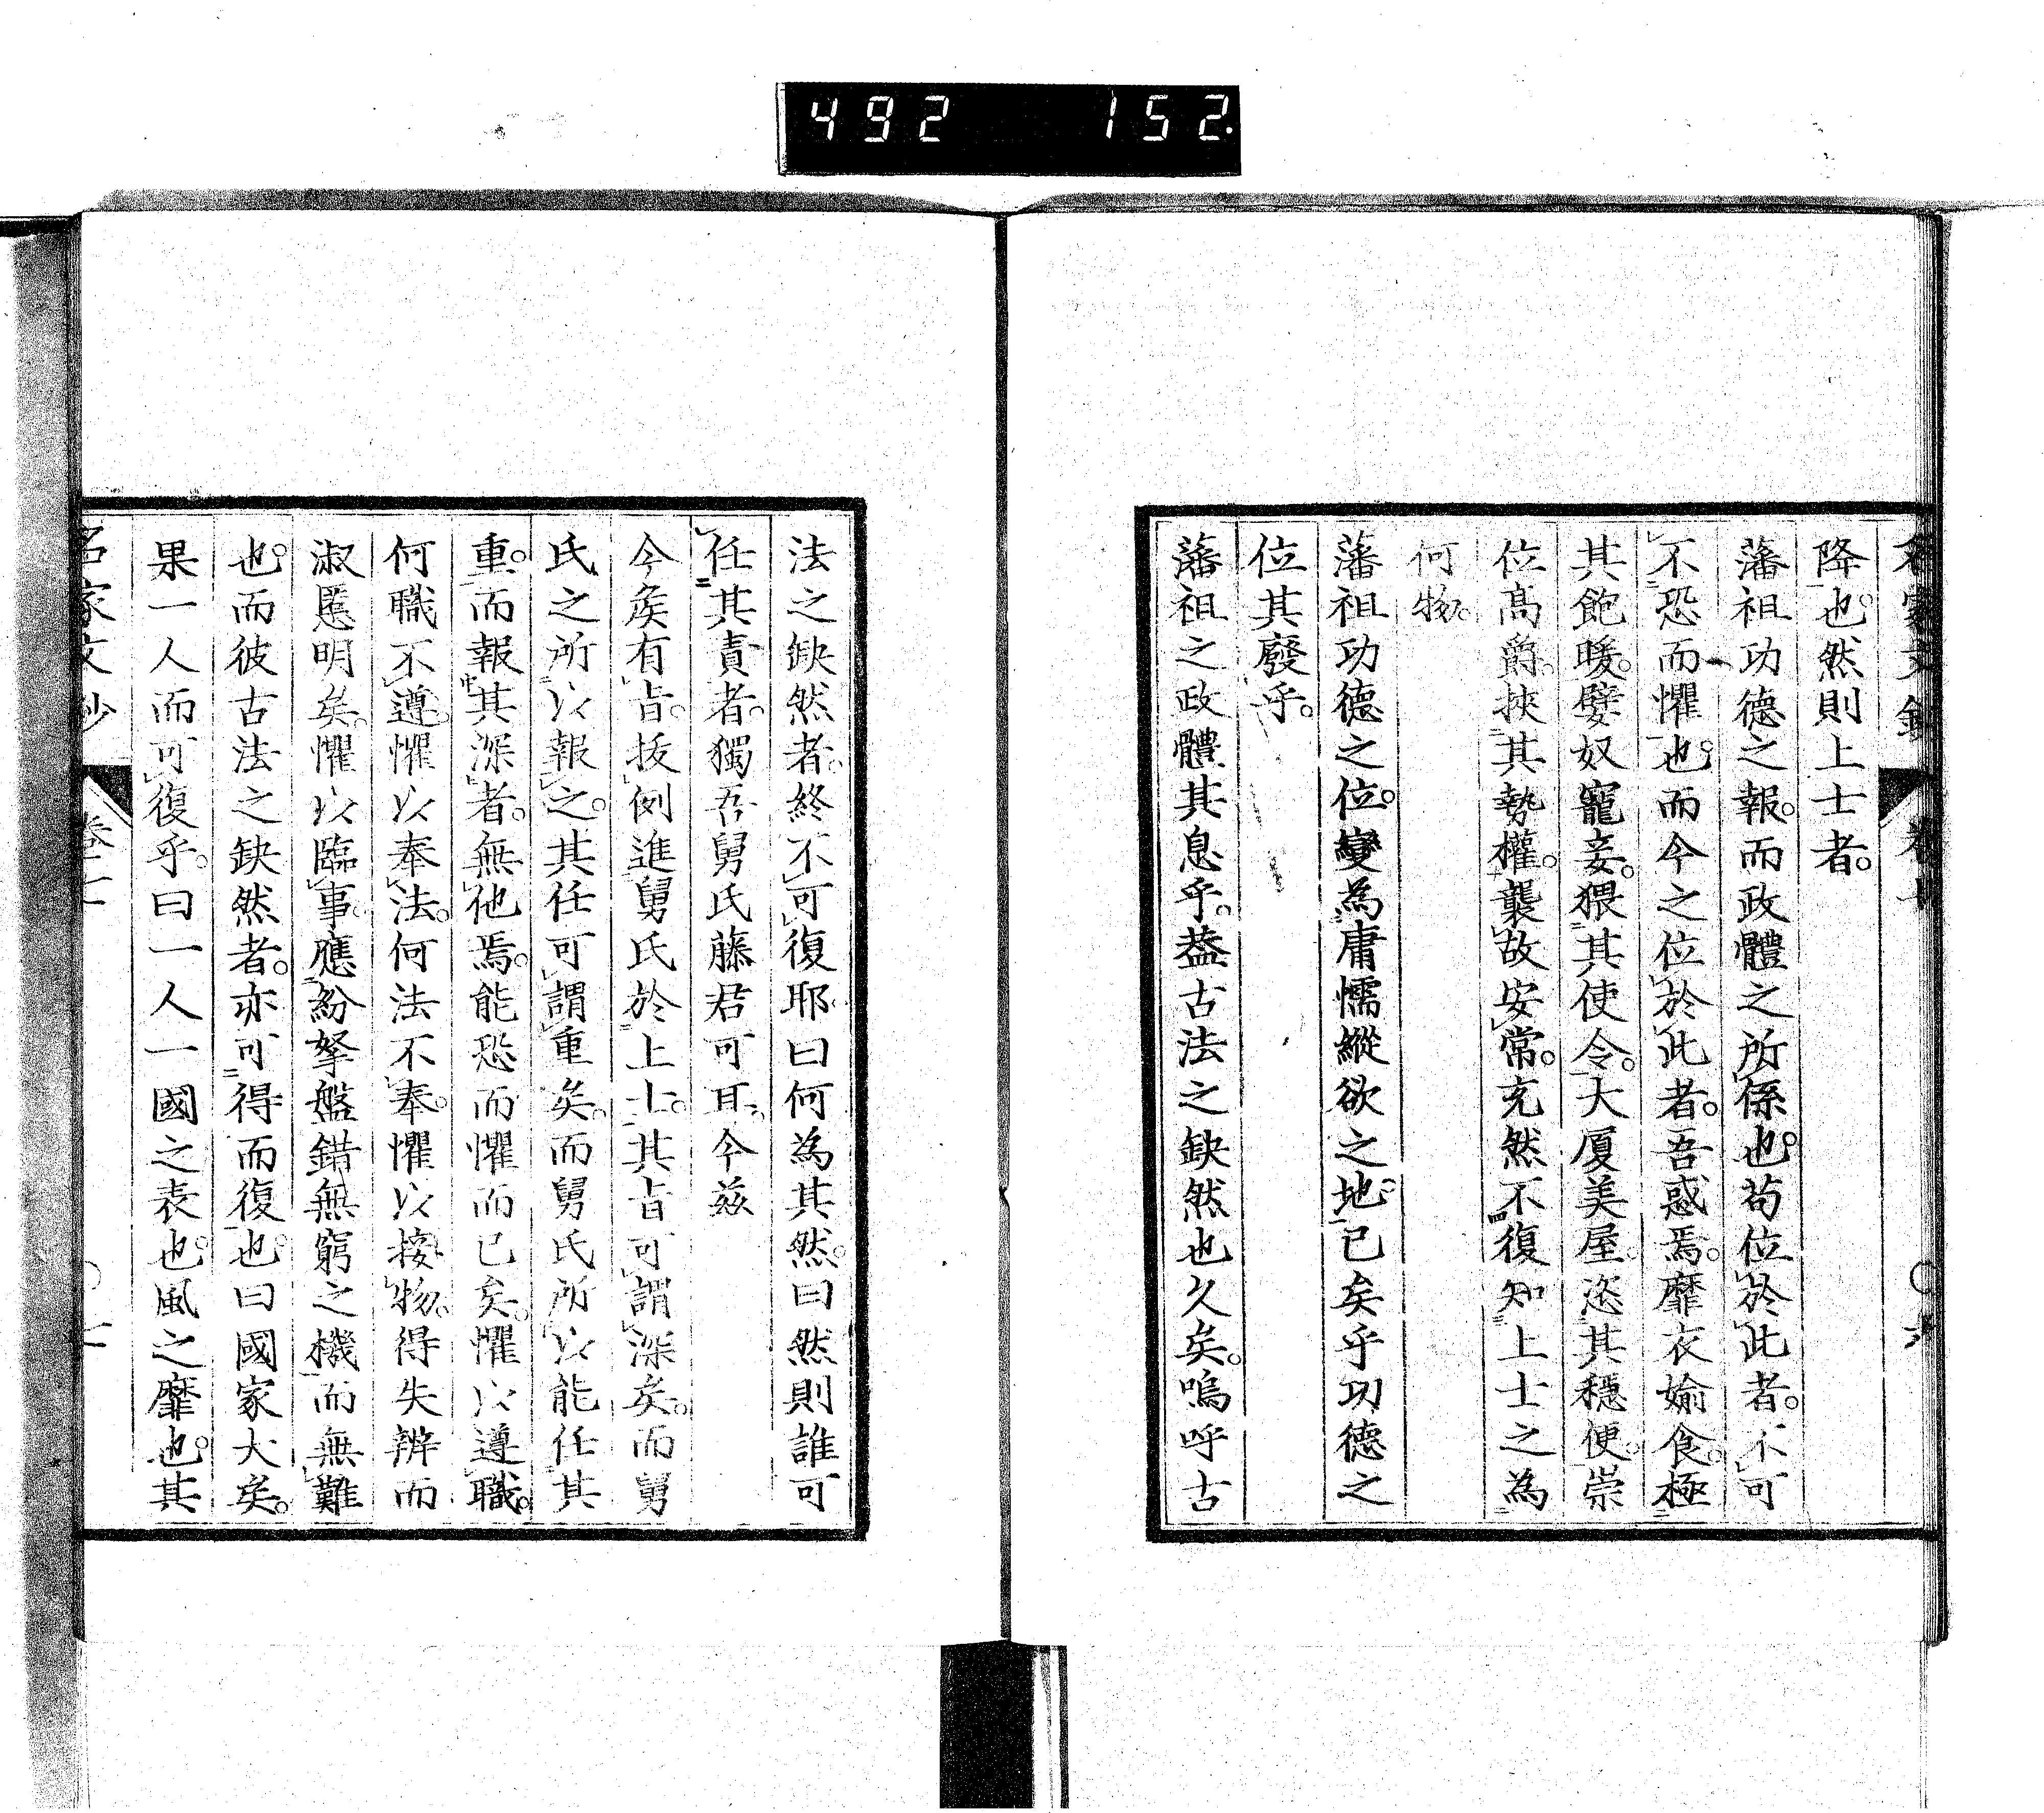 492 152.
名家文鈔 卷十 〇六
降也。然則上士者。
藩祖功德之報。而政體之所係也。苟位於此者。不可
不恐而懼也。而今之位於此者。吾惑焉。靡衣媮食。極
其飽暖。嬖奴寵妾。猥其使令。大厦美屋。恣其穩便。崇
位高爵。挾其勢權。襲故安常。充然不復知上士之為
何物。
藩祖功德之位。變為庸懦縱欲之地。已矣乎功德之
位其廢乎。
藩祖之政體其息乎。葢古法之缺然也久矣。嗚呼古
法之缺然者。終不可復耶。曰何為其然。曰然則誰可
任其責者。獨吾舅氏藤君可耳。今茲
今矦有旨。拔例進舅氏於上士。其旨可謂深矣。而舅
氏之所以報之。其任可謂重矣。而舅氏所以能任其
重。而報其深者。無他焉。能恐而懼而已矣。懼以遵職。
何職不遵。懼以奉法。何法不奉。懼以接物。得失辨而
淑慝明矣。懼以臨事。應紛拏盤錯無窮之機。而無難
也。而彼古法之缺然者。亦可得而復也。曰國家大矣。
果一人而可復乎。曰一人一國之表也。風之靡也。其
名家文鈔 卷十 〇七